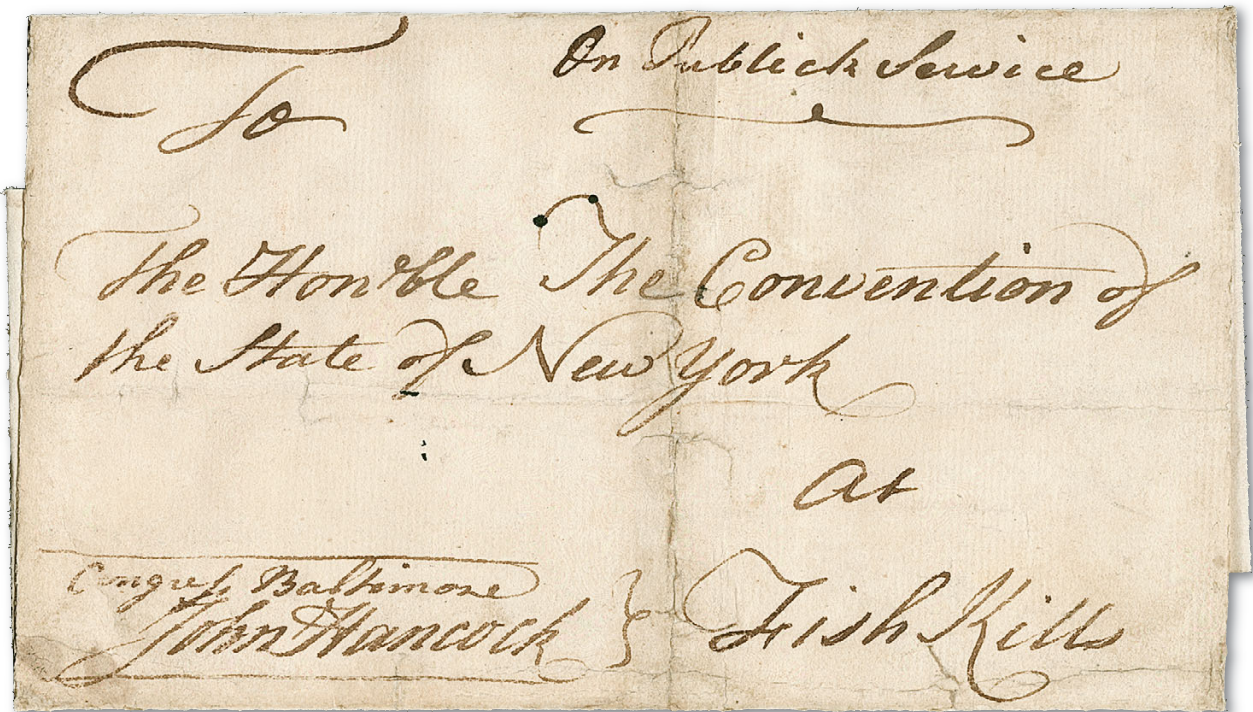 On Publick Service
To
The Hon'ble The Convention of
the State of New York
At
Fish Kills
Congress Baltimore
John Hancock